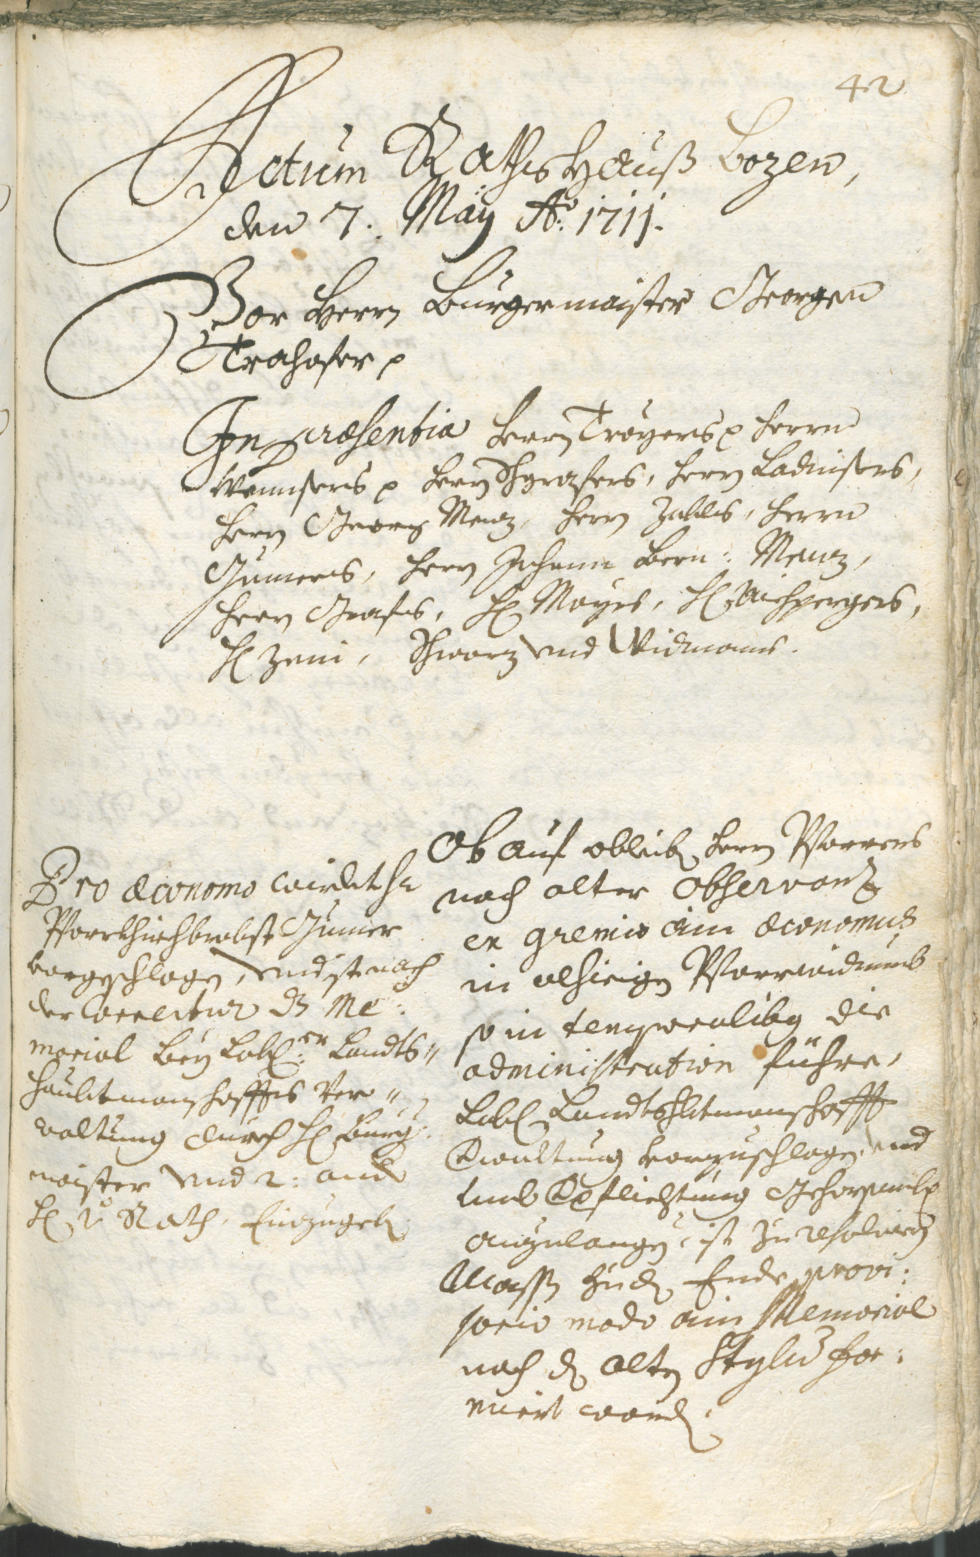 42
Actum RathsHauß Bozen,
den 7. Maÿ Ao: 1711.
Vor Herrn Burgermaister Georgen
Trachoser p
In præsentia Herrn Troyers p Herrn
Wennsers p Herrn Hgrafers, Herrn Ladinsers,
Herrn Georg Menz, Herrn Zallis, Herrn
Gumers, Herrn Johann Bern: Menz,
Herrn Grafs, H. Mayrs, H. Aichpergers,
H. Zeni, Schwarz vnd Widmanns.
Pro œconomo wirdet H.
Pfarrkhirchbrobst Gumer
vorgeschlagen, vnd ist nach
der Correctur ds Me:
morial beÿ Lobl:er Landts=
haubtmanschafft Ver=
waltung durch H. Burger
maister vnd 2: and.
H. d. Rath, Einzugeb.
Ob auf ableib. Herrn Pfarrers
nach alter Observanz
ex gremio ain œconomus
in alhieigen Pfarrwidumb
so in temporalibus die
administration führe,
Lobl. Landtshbtmanschafft
Verwaltung vorzuschlagen, vnd
umb Verpflichtung Gehorsamb.
anzulangen, ist zu resolvieren
Massen zu d. Ende provi:
sorio modo ain Memorial
nach d. alten Stylus for:
miert word.